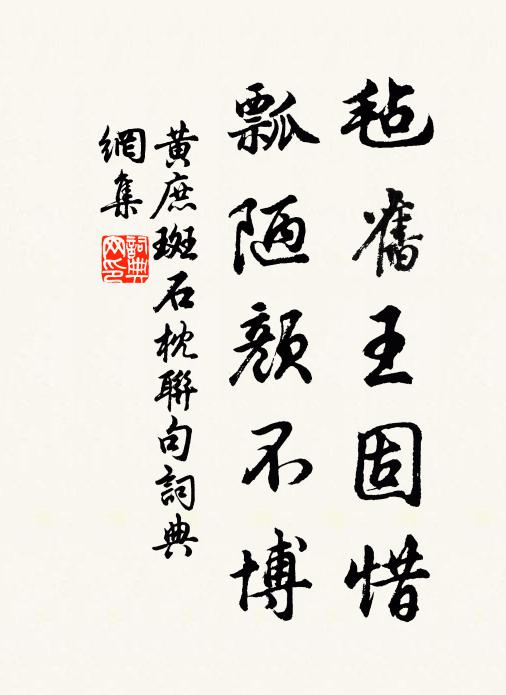 毡舊王固惜
瓢陋顏不博
黃庶斑石枕聯句詞典
網集
詞典网印